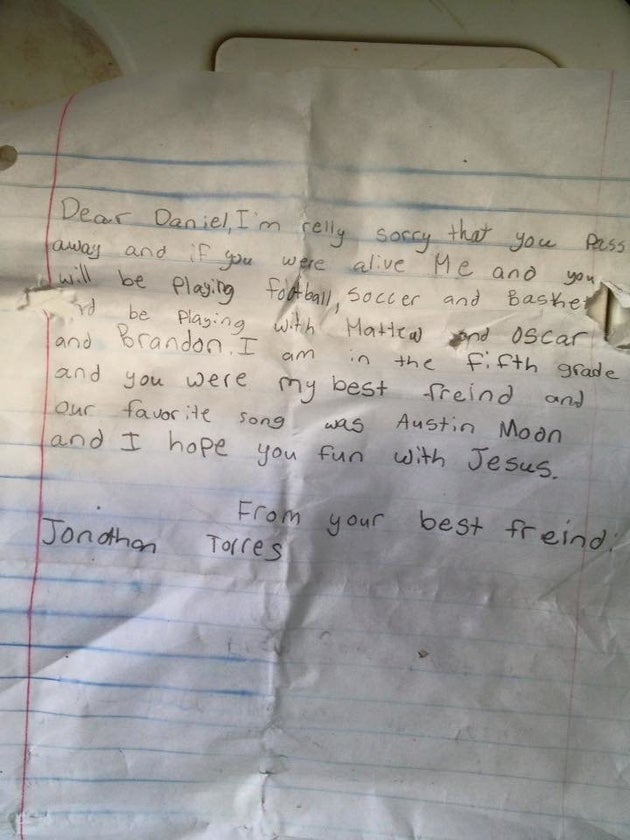 Dear Daniel, I'm relly sorry that you pass
away and if you were alive Me and you
will be playing football, soccer and Basket
be playing with Mattew and Oscar
and Brandon. I am in the fifth grade
and you were my best freind and
our favorite song was Austin Moon
and I hope you fun with Jesus.
From your best freind:
Jonathan Torres